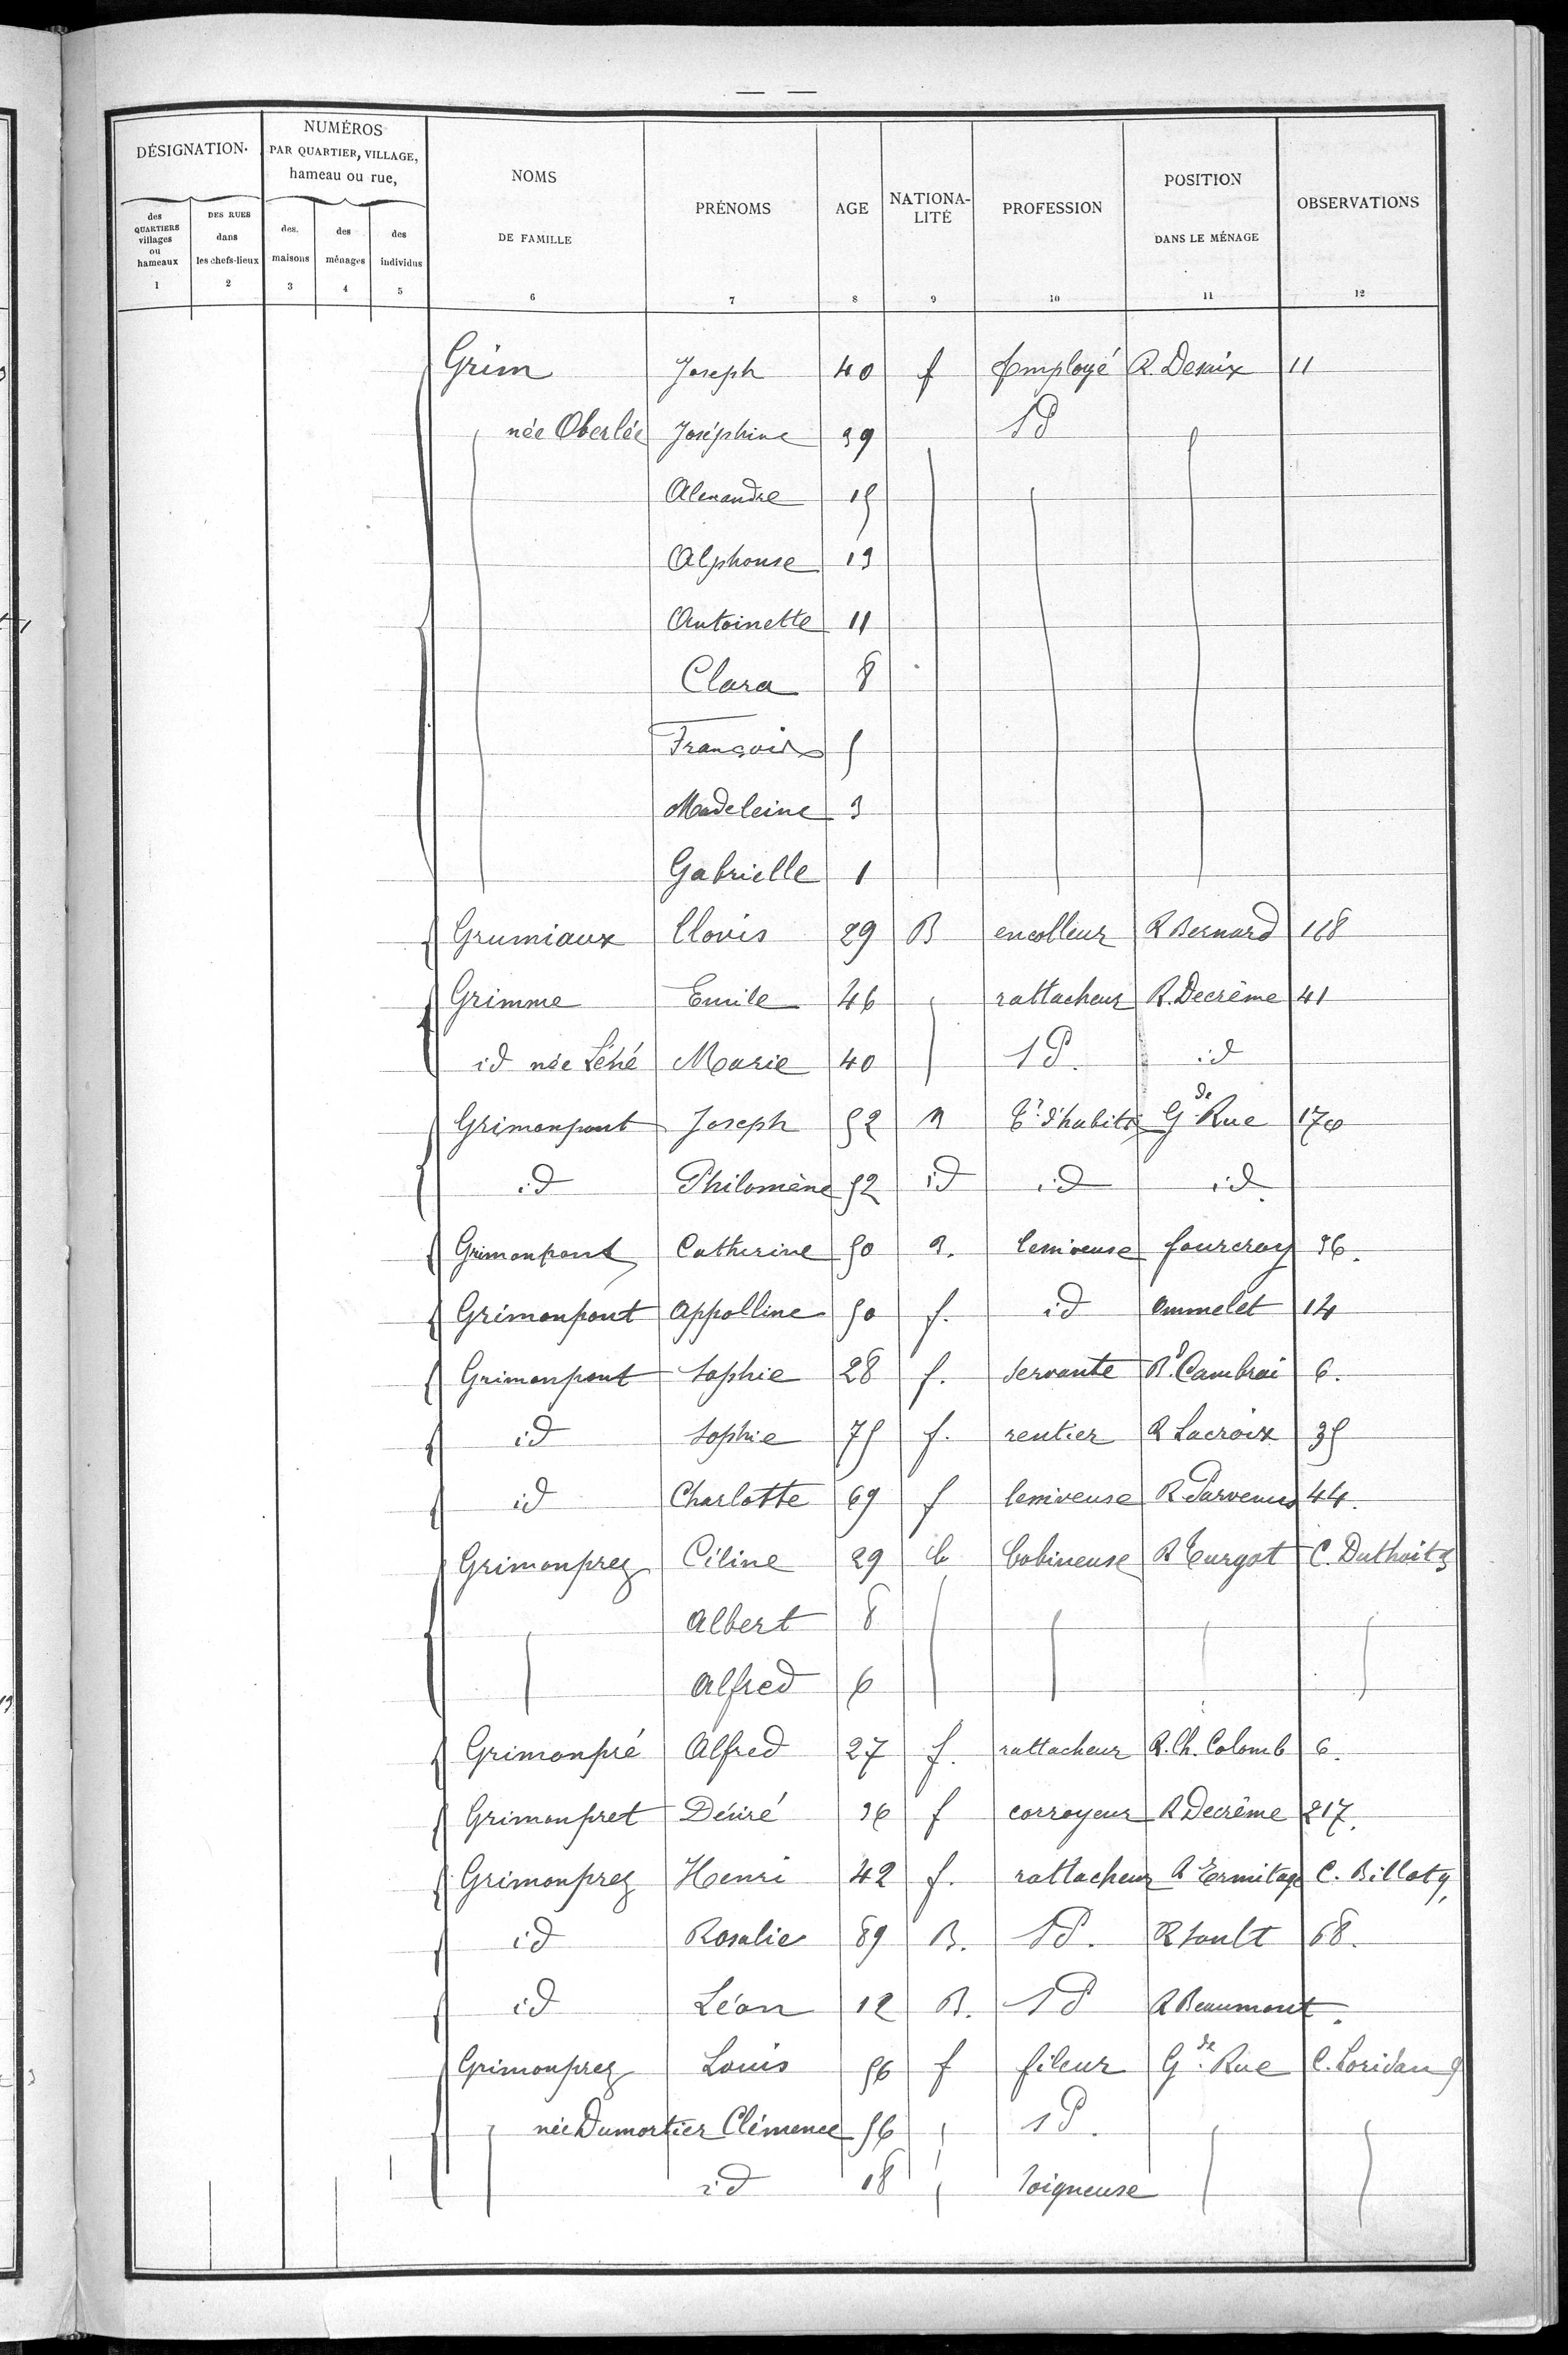 — —
DÉSIGNATION.
NUMÉROS
PAR QUARTIER, VILLAGE,
hameau ou rue,
NOMS
DE FAMILLE
PRÉNOMS
AGE
NATIONA-
LITÉ
PROFESSION
POSITION
DANS LE MÉNAGE
OBSERVATIONS
des
QUARTIERS
villages
ou
hameaux
DES RUES
dans
les chefs-lieux
des
maisons
des
ménages
des
individus
1 2 3 4 5 6 7 8 9 10 11 12
Grim Joseph 40 f Employé R. Desaix 11
née Oberlée Joséphine 39 SP
Alexandre 15
Alphonse 13
Antoinette 11
Clara 8
François 5
Madeleine 3
Gabrielle 1
Grumiaux Clovis 29 B encolleur R Bernard 118
Grimme Emile 46 rattacheur R. Decrême 41
id née Léhé Marie 40 SP. id
Grimonpont Joseph 52 d'habits Gde Rue 170
id Philomène 52 id id id
Grimonpont Catherine 50 lessiveuse fourcroy 36.
Grimonpont Appolline 50 f. id Ommelet 14
Grimonpont Sophie 28 f. servante Bd Cambrai 6.
id Sophie 75 f. rentier R Lacroix 35
id Charlotte 69 f lessiveuse R Parvenus 44.
Grimonprez Céline 29 b bobineuse R Turgot C. Duthoit 5
Albert 8
Alfred 6
Grimonpré Alfred 27 f. rattacheur R. Ch. Colomb 6.
Grimonpret Désiré 36 f corroyeur R Decrême 217.
Grimonprez Henri 42 f. rattacheur R Ermitage C. Billot 9
id Rosalie 89 B. SP. R Soult 68.
id Léon 12 B. SP R Beaumont.
Grimonprez Louis 56 f fileur Gde Rue C. Loridan 9
née Dumortier Clémence 56 SP.
id 18 soigneuse